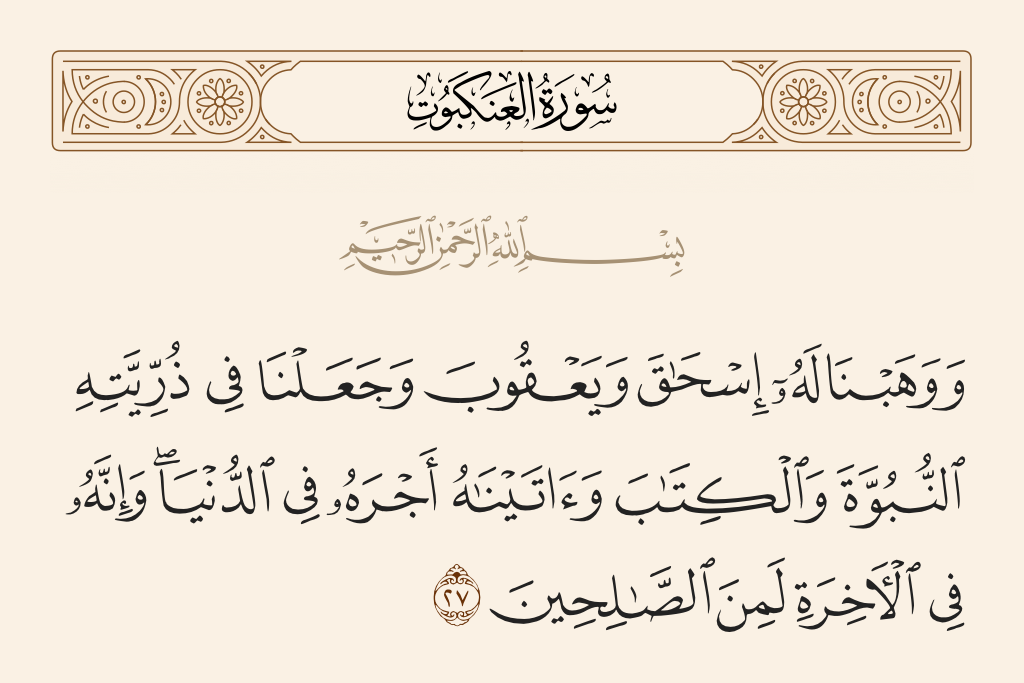 سُورَةُ العَنكَبُوتِ
بِسْمِ ٱللَّهِ ٱلرَّحْمَٰنِ ٱلرَّحِيمِ
وَوَهَبْنَا لَهُۥٓ إِسْحَٰقَ وَيَعْقُوبَ وَجَعَلْنَا فِى ذُرِّيَّتِهِ
ٱلنُّبُوَّةَ وَٱلْكِتَٰبَ وَءَاتَيْنَٰهُ أَجْرَهُۥ فِى ٱلدُّنْيَا ۖ وَإِنَّهُۥ
فِى ٱلْـَٔاخِرَةِ لَمِنَ ٱلصَّٰلِحِينَ ٢٧